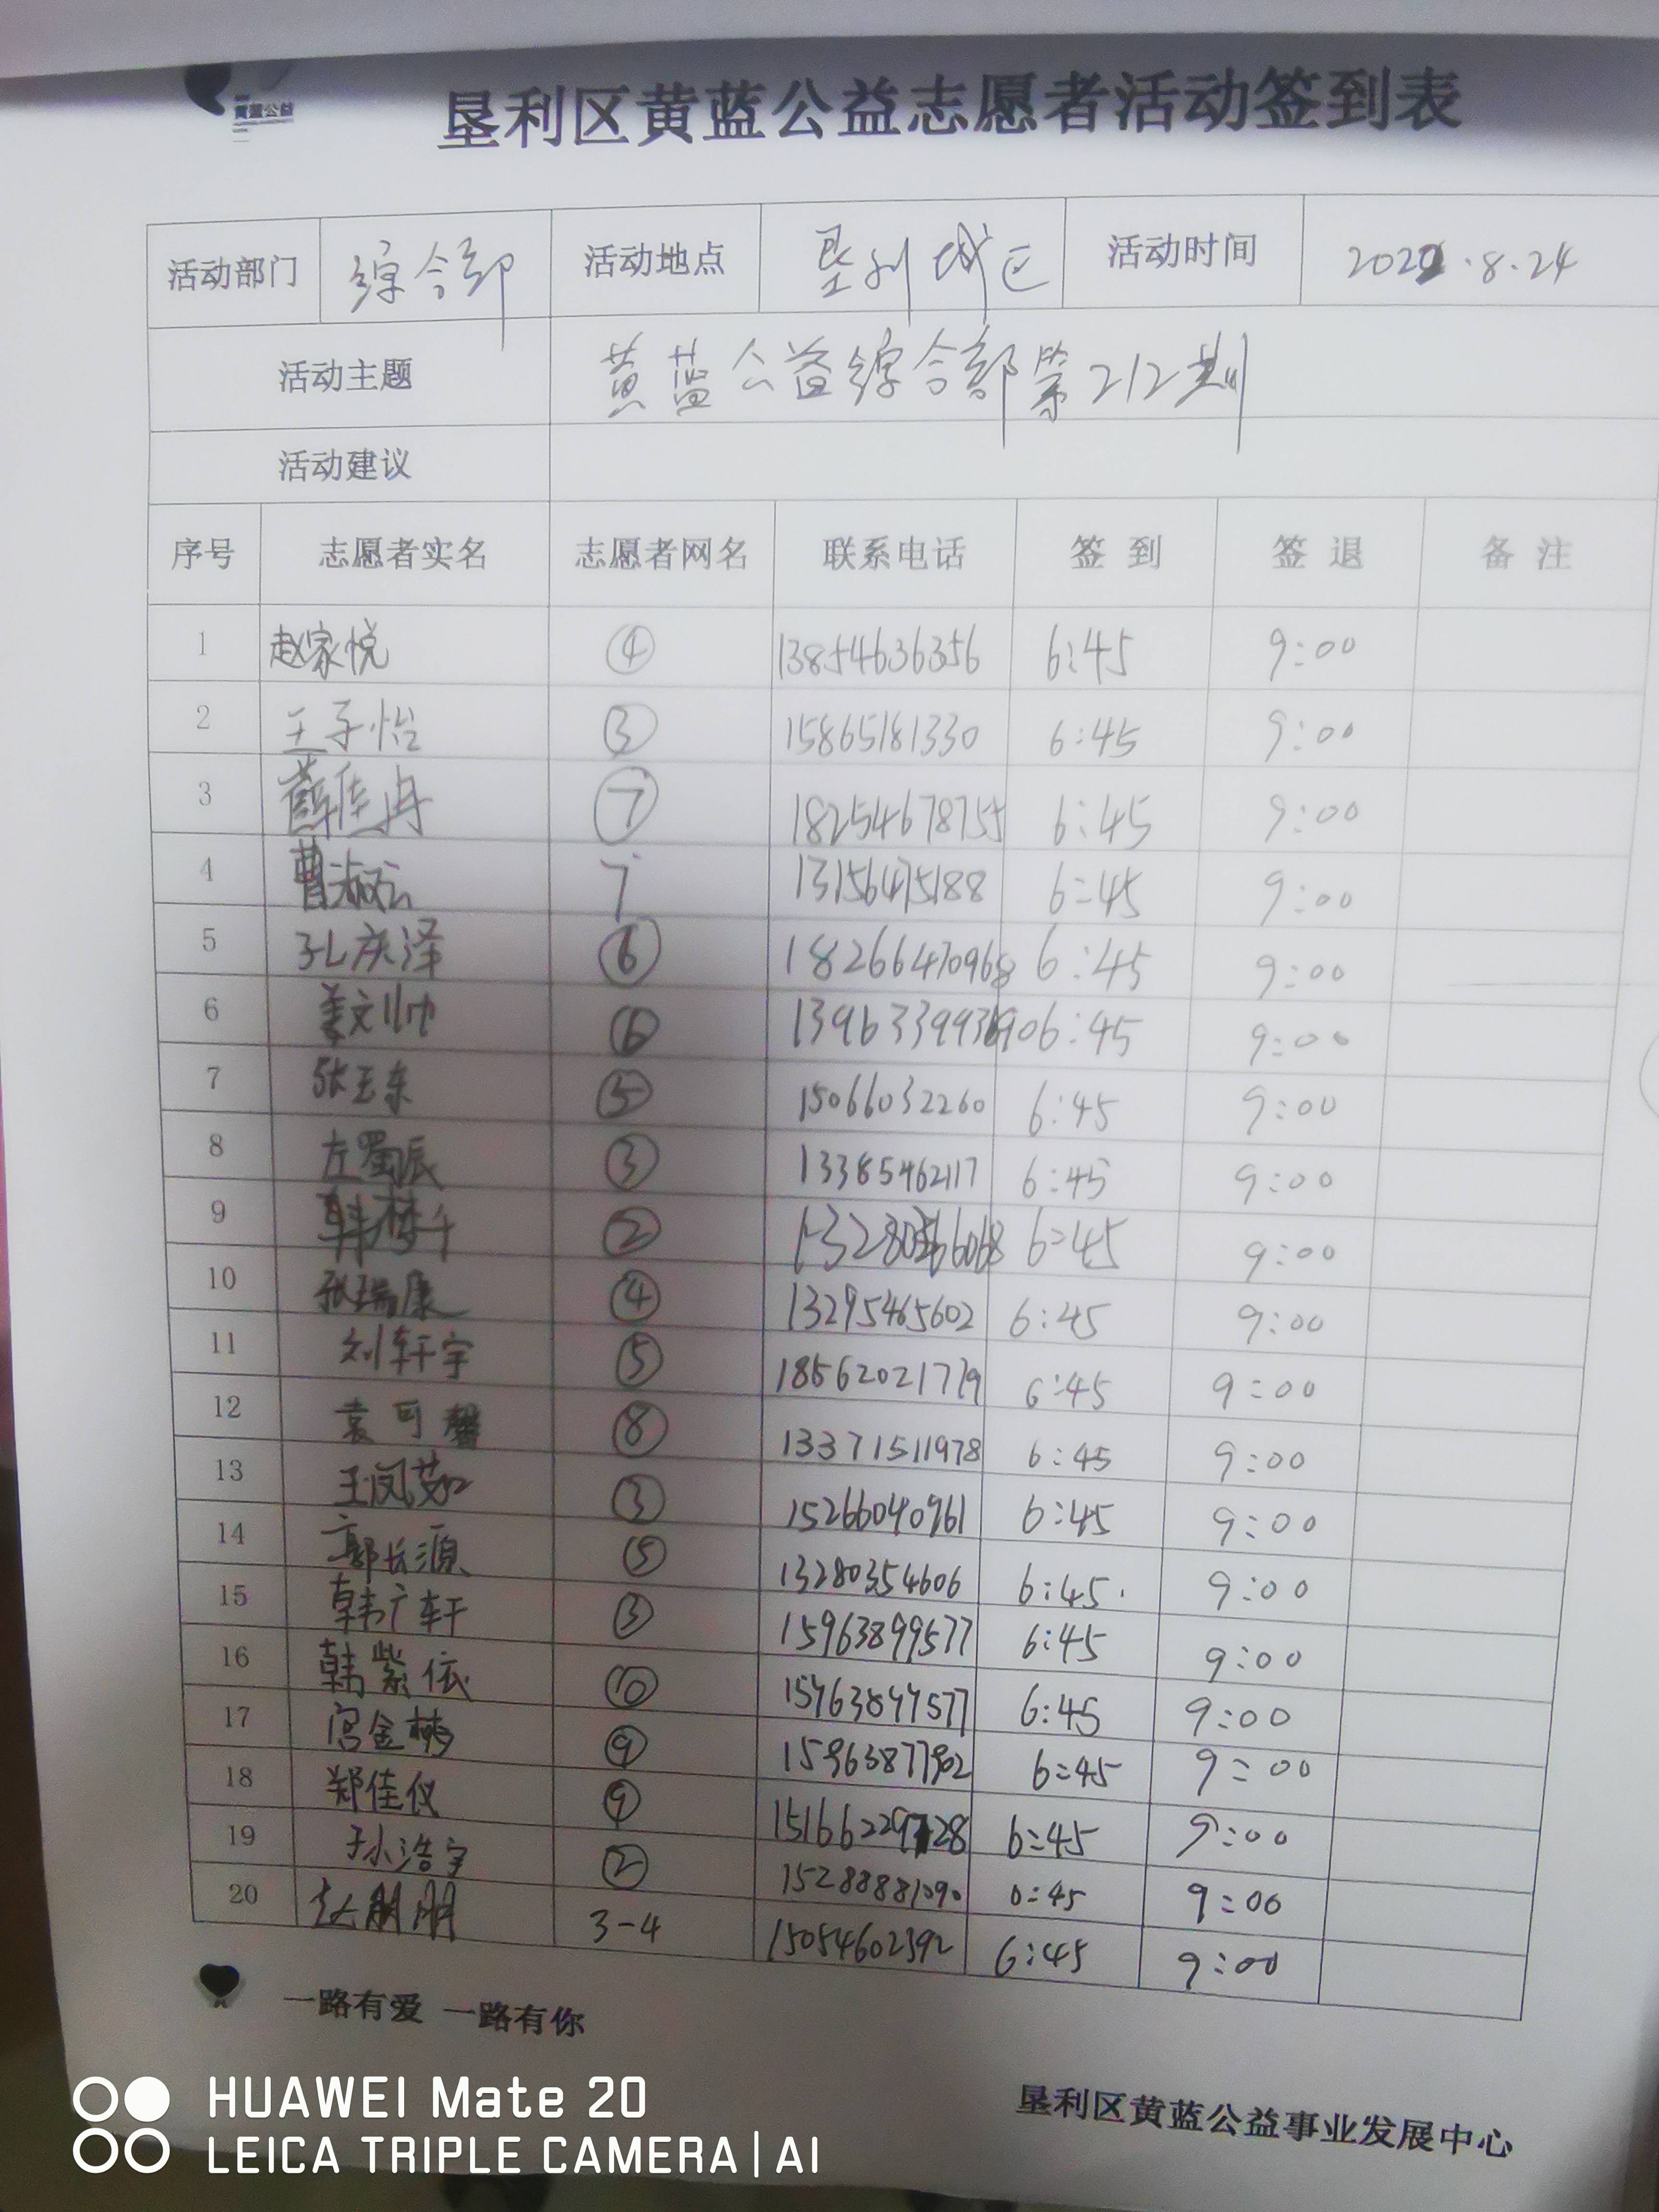 黄蓝公益
垦利区黄蓝公益志愿者活动签到表
活动部门 综合部 活动地点 垦利城区 活动时间 2022.8.24
活动主题 黄蓝公益综合部第212期
活动建议
序号 志愿者实名 志愿者网名 联系电话 签到 签退 备注
1 赵家悦 ④ 13854636356 6:45 9:00
2 王子怡 ③ 15865181330 6:45 9:00
3 薛佳冉 ⑦ 18254678755 6:45 9:00
4 曹淑云 7 13156475188 6:45 9:00
5 孔庆泽 ⑥ 18266470968 6:45 9:00
6 姜文帅 ⑥ 6:45 9:00
7 张玉东 ⑤ 15066032260 6:45 9:00
8 左蜀辰 ③ 13385462117 6:45 9:00
9 韩梦千 ② 6:45 9:00
10 张瑞康 ④ 13295465602 6:45 9:00
11 刘轩宇 ⑤ 18562021779 6:45 9:00
12 袁可馨 ⑧ 13371511978 6:45 9:00
13 王凤茹 ③ 15266040961 6:45 9:00
14 郭长源 ⑤ 13280354606 6:45. 9:00
15 韩广轩 ③ 15963899577 6:45 9:00
16 韩紫依 ⑩ 15963899577 6:45 9:00
17 宫金彤 ⑨ 15963877902 6:45 9:00
18 郑佳仪 ⑨ 6:45 9:00
19 孙浩宇 ② 15288881090 6:45 9:00
20 赵朋朋 3-4 15054602392 6:45 9:00
一路有爱 一路有你
垦利区黄蓝公益事业发展中心
HUAWEI Mate 20
LEICA TRIPLE CAMERA | AI